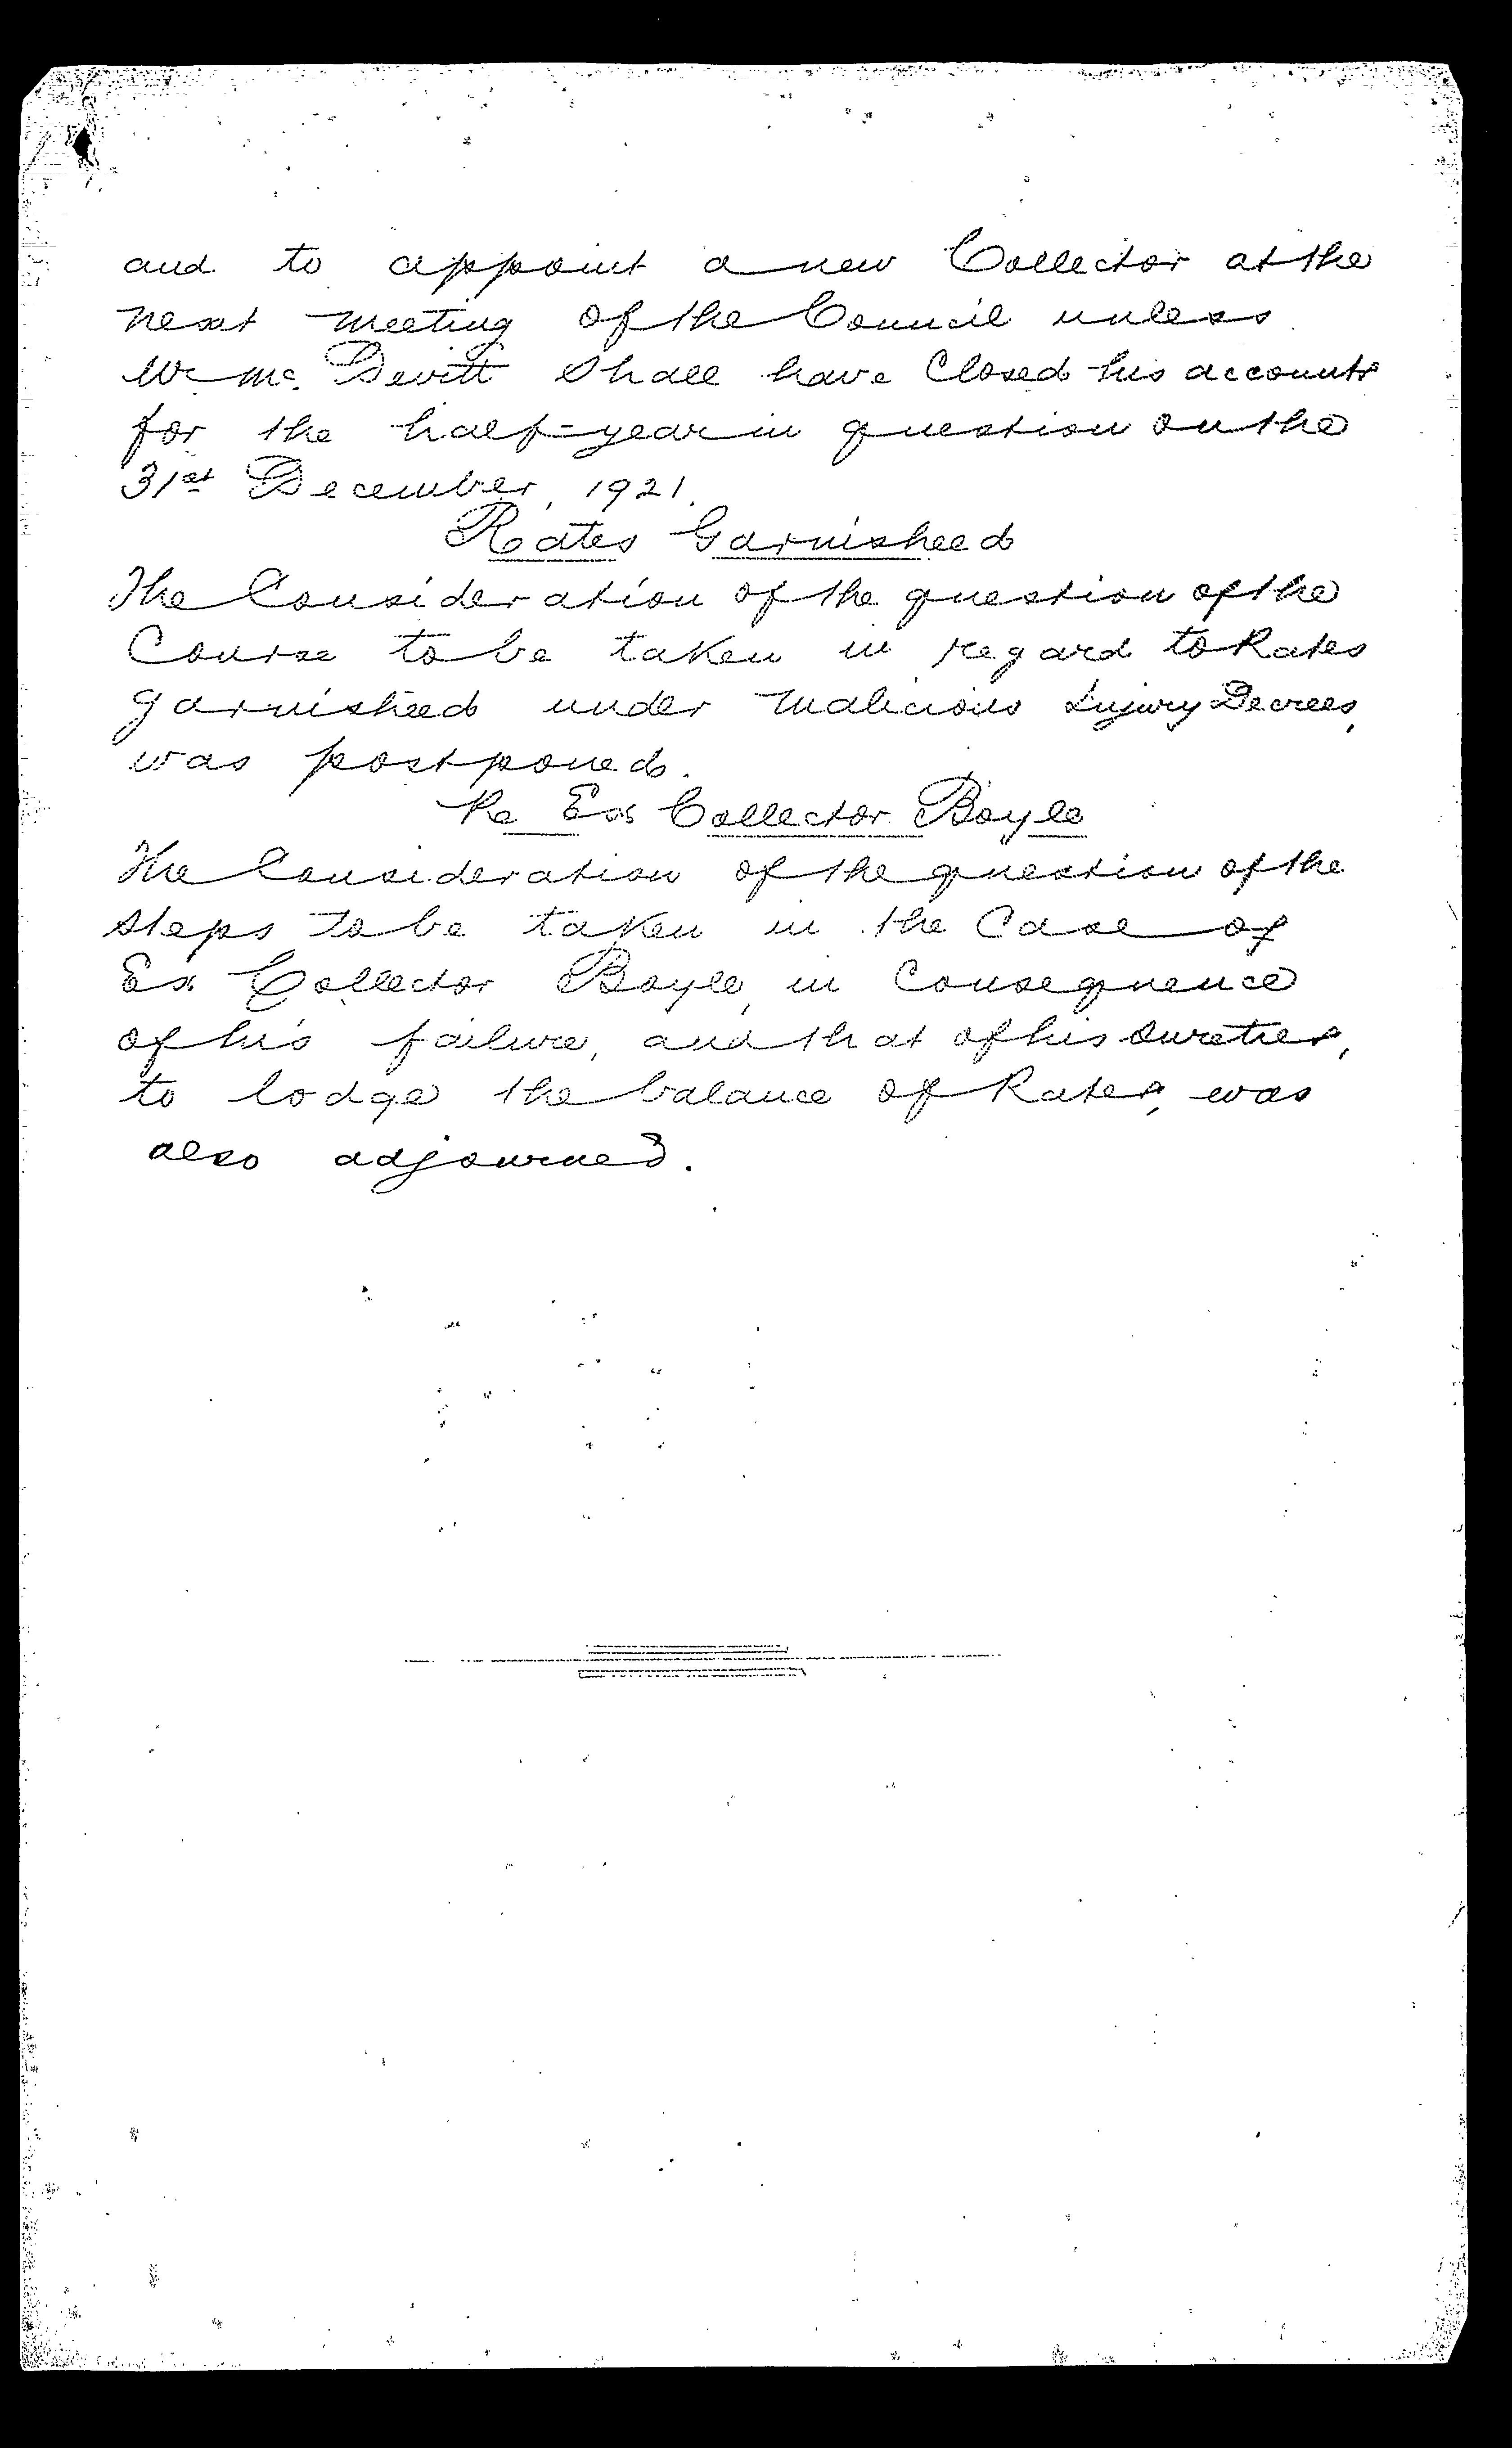 and to appoint a new Collector at the
next meeting of the Council unless
Mr Mc. Devitt Shall have Closed his accounts
for the half=year in question on the
31st December, 1921.
Rates Garnisheed
The Consideration of the question of the
Course to be taken in regard to Rates
garnisheed under Malicious Injury Decrees,
was postponed.
Re Ex Collector Boyle
The Consideration of the question of the
steps to be taken in the Case of
Ex Collector Boyle, in Consequence
of his failure, and that of his sureties,
to lodge the balance of Rates, was
also adjourned.